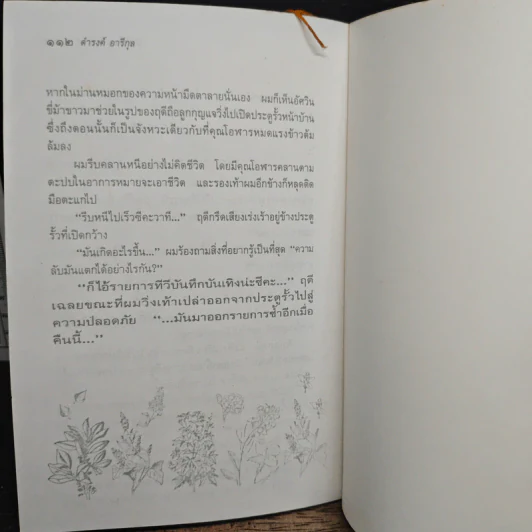 ๑๑๒ ดำรงค์ อารีกุล
หากในม่านหมอกของความหน้ามืดตาลายนั่นเอง ผมก็เห็นอัศวิน
ขี่ม้าขาวมาช่วยในรูปของฤดีถือลูกกุญแจวิ่งไปเปิดประตูรั้วหน้าบ้าน
ซึ่งถึงตอนนั้นก็เป็นจังหวะเดียวกับที่คุณโอฬารหมดแรงข้าวต้ม
ล้มลง
ผมรีบคลานหนีอย่างไม่คิดชีวิต โดยมีคุณโอฬารคลานตาม
ตะปบในอาการหมายจะเอาชีวิต และรองเท้าผมอีกข้างก็หลุดติด
มือตะแกไป
“รีบหนีไปเร็วซีคะวาที...” ฤดีกรีดเสียงเร่งเร้าอยู่ข้างประตู
รั้วที่เปิดกว้าง
“มันเกิดอะไรขึ้น...” ผมร้องถามสิ่งที่อยากรู้เป็นที่สุด “ความ
ลับมันแตกได้อย่างไรกัน?”
“ก็ไอ้รายการทีวีบันทึกบันเทิงน่ะซีคะ...” ฤดี
เฉลยขณะที่ผมวิ่งเท้าเปล่าออกจากประตูรั้วไปสู่
ความปลอดภัย “...มันมาออกรายการซ้ำอีกเมื่อ
คืนนี้...”